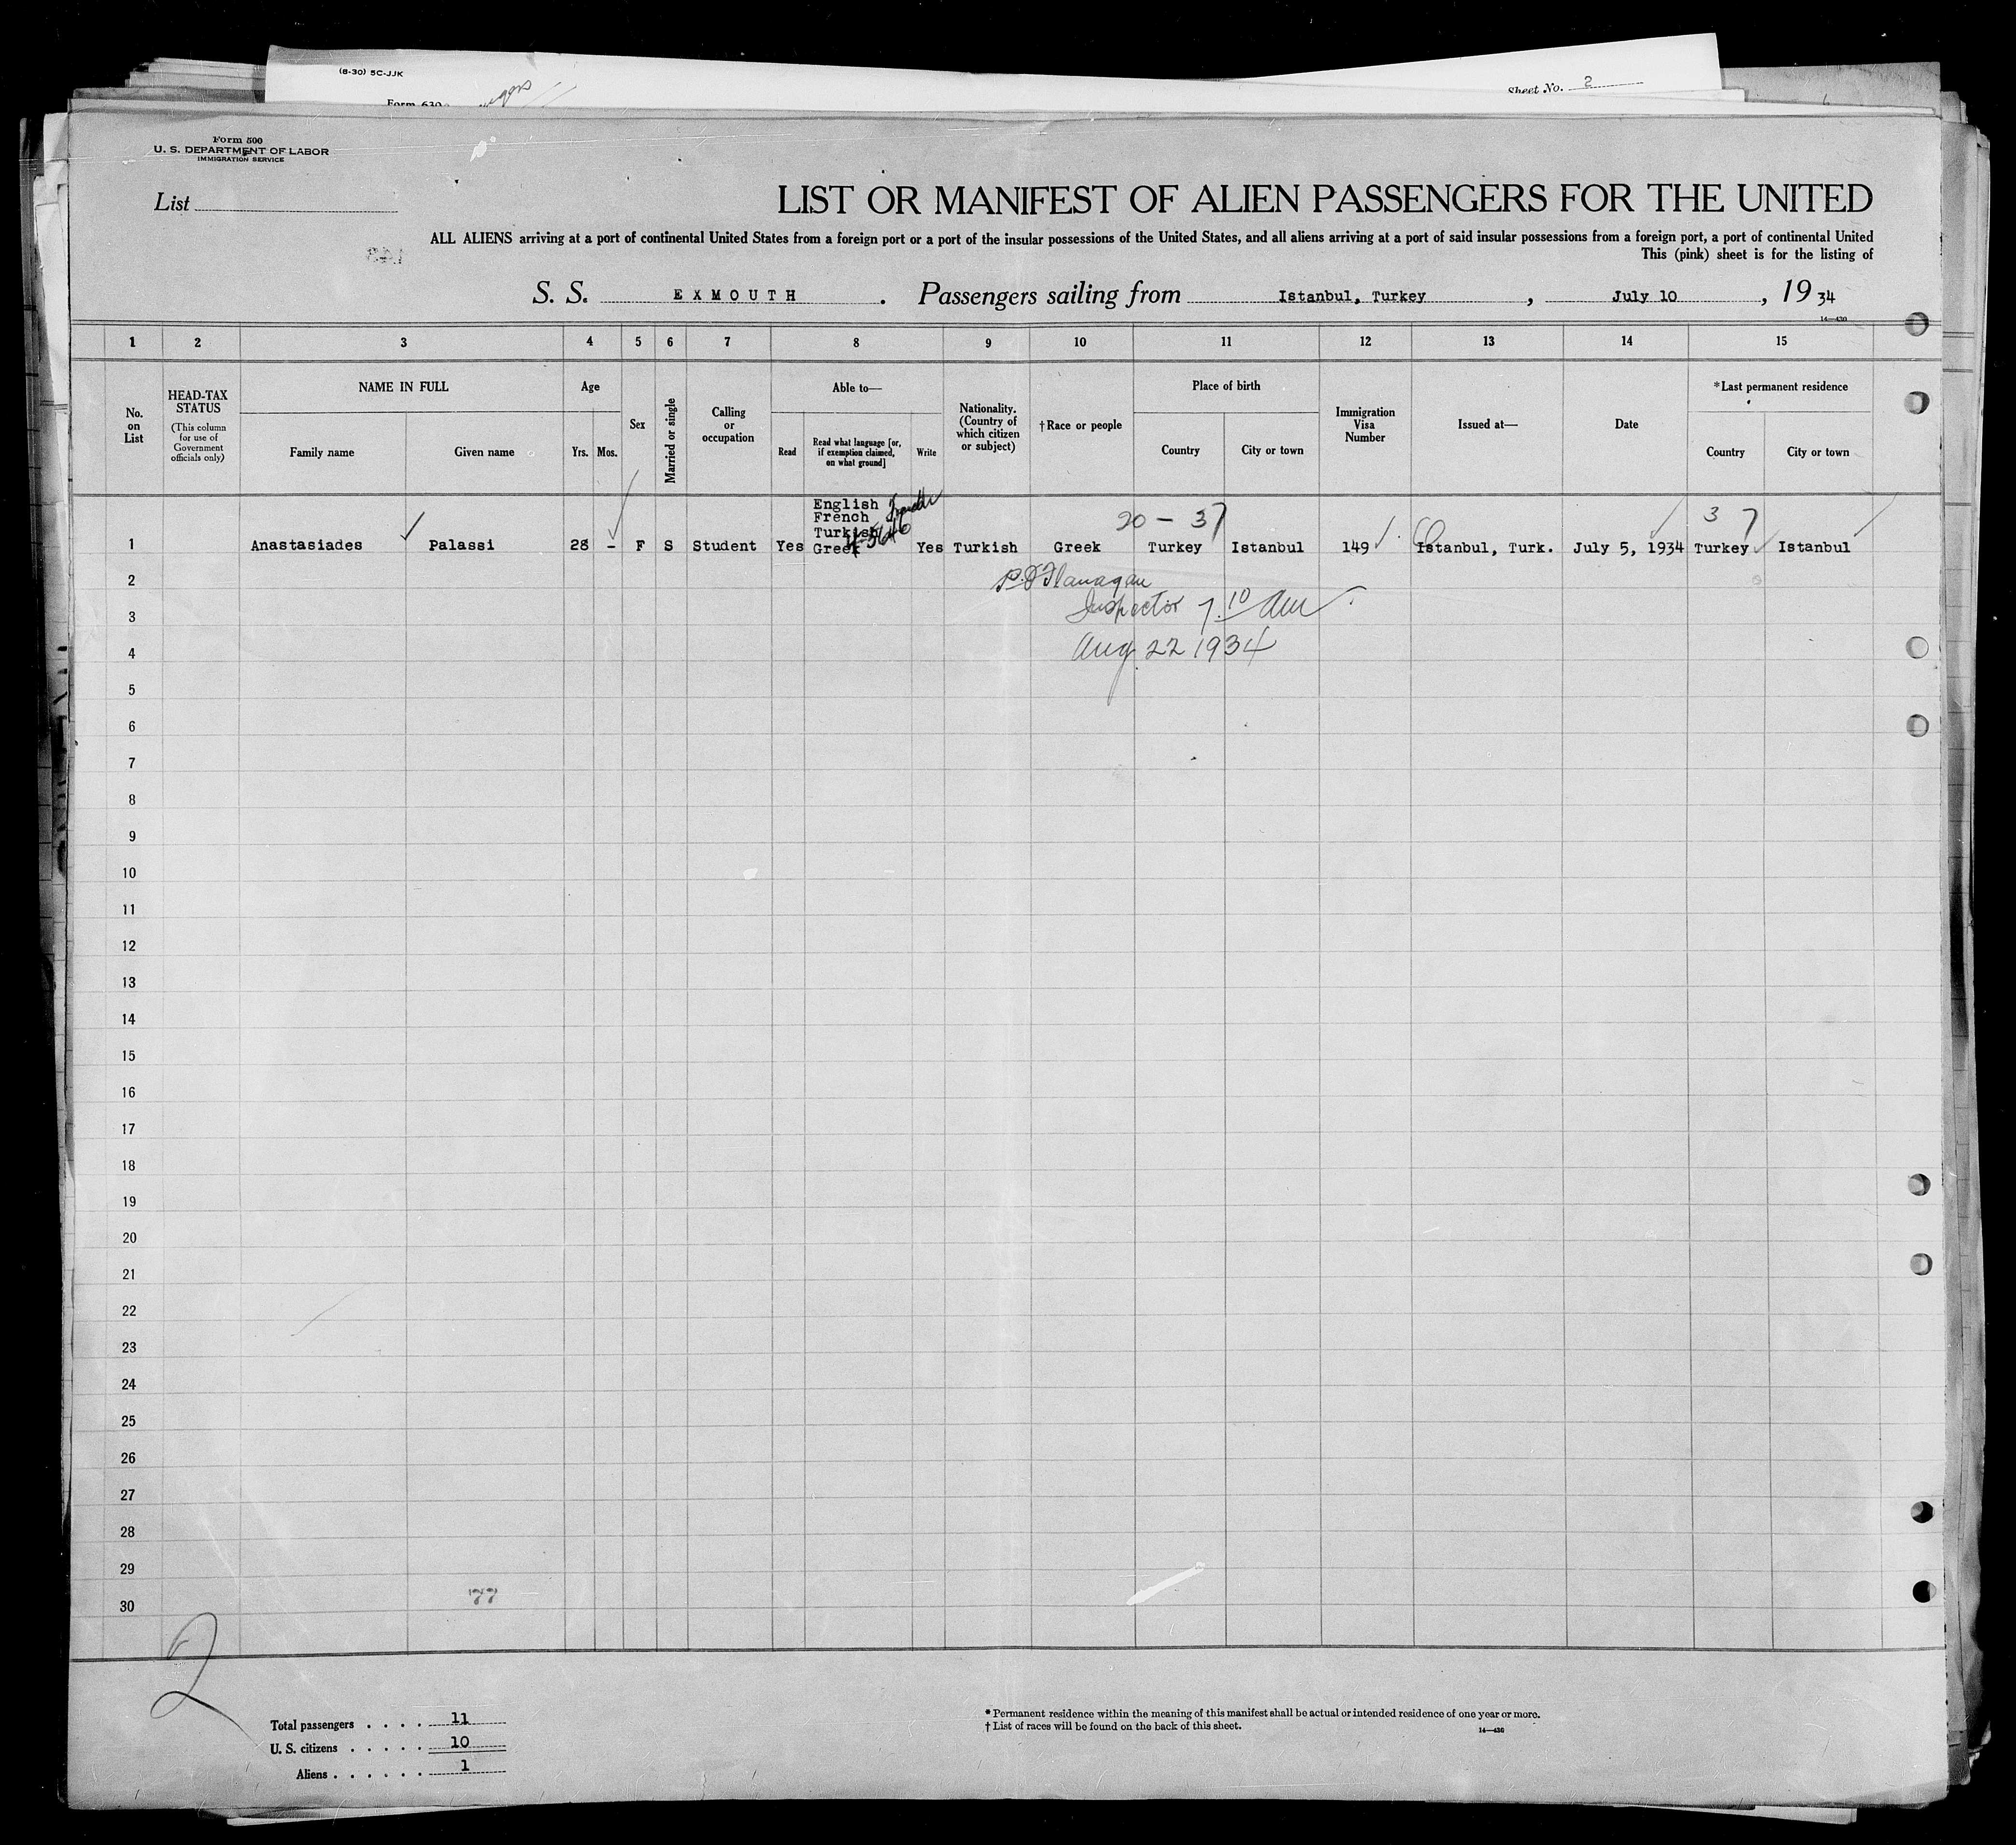 (8-30) 5C-JJK
Form 630
Sheet No. 2
Form 500
U. S. DEPARTMENT OF LABOR
IMMIGRATION SERVICE
List
LIST OR MANIFEST OF ALIEN PASSENGERS FOR THE UNITED
ALL ALIENS arriving at a port of continental United States from a foreign port or a port of the insular possessions of the United States, and all aliens arriving at a port of said insular possessions from a foreign port, a port of continental United
This (pink) sheet is for the listing of
S. S. EXMOUTH . Passengers sailing from Istanbul, Turkey , July 10 , 19 34
14—430
1 2 3 4 5 6 7 8 9 10 11 12 13 14 15
No. on List
HEAD-TAX STATUS
(This column for use of Government officials only)
NAME IN FULL
Family name Given name
Age
Yrs. Mos.
Sex
Married or single
Calling or occupation
Able to—
Read
Read what language [or, if exemption claimed, on what ground]
Write
Nationality. (Country of which citizen or subject)
†Race or people
Place of birth
Country City or town
Immigration Visa Number
Issued at—
Date
*Last permanent residence
Country City or town
20 - 37
3 7
English
French
Turkish
1 Anastasiades Palassi 28 - F S Student Yes Greek Yes Turkish Greek Turkey Istanbul 149 Istanbul, Turk. July 5, 1934 Turkey Istanbul
2 P. J Flanagan
3 Inspector 7.10 Am
4 Aug 22 1934
5
6
7
8
9
10
11
12
13
14
15
16
17
18
19
20
21
22
23
24
25
26
27
28
29
77
30
2
Total passengers . . . . 11
U. S. citizens . . . . . 10
Aliens . . . . . . 1
* Permanent residence within the meaning of this manifest shall be actual or intended residence of one year or more.
† List of races will be found on the back of this sheet.
14—430